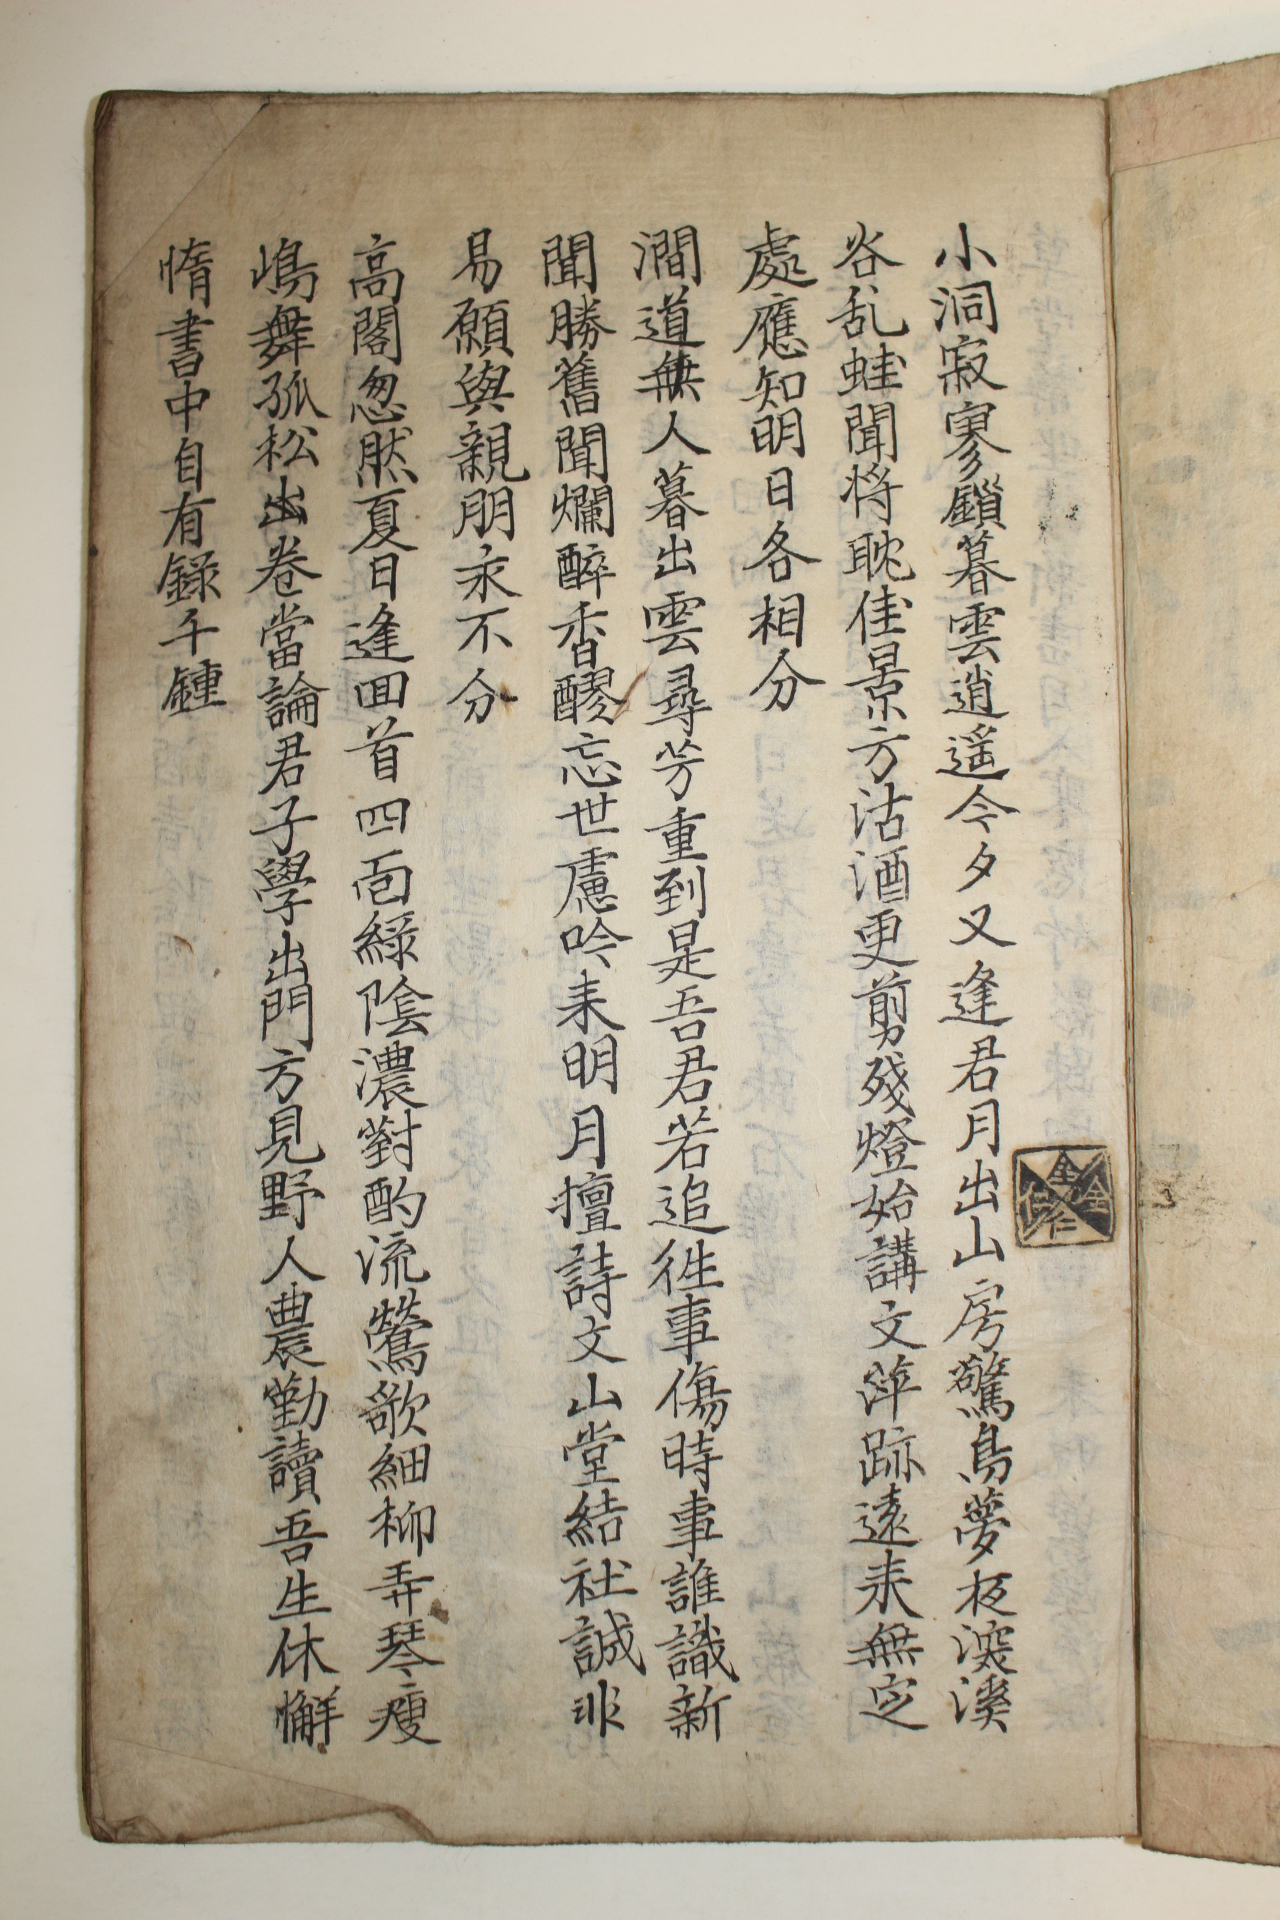 小洞寂寥鎖暮雲逍遥今夕又逢君月出山房驚鳥夢夜深溪
谷乱蛙聞将耽佳景方沽酒更剪残燈始講文萍跡遠来無定
處應知明日各相分
澗道無人暮出雲尋芳重到是吾君若追徃事傷時事誰識新
聞勝舊聞爛醉香醪忘世慮吟来明月擅詩文山堂結社誠非
易願與親朋永不分
高閣忽然夏日逢回首四面綠陰濃對酌流鶯歌細柳弄琴瘦
嶋舞孤松出卷當論君子學出門方見野人農勤讀吾生休懈
惰書中自有録千鍾